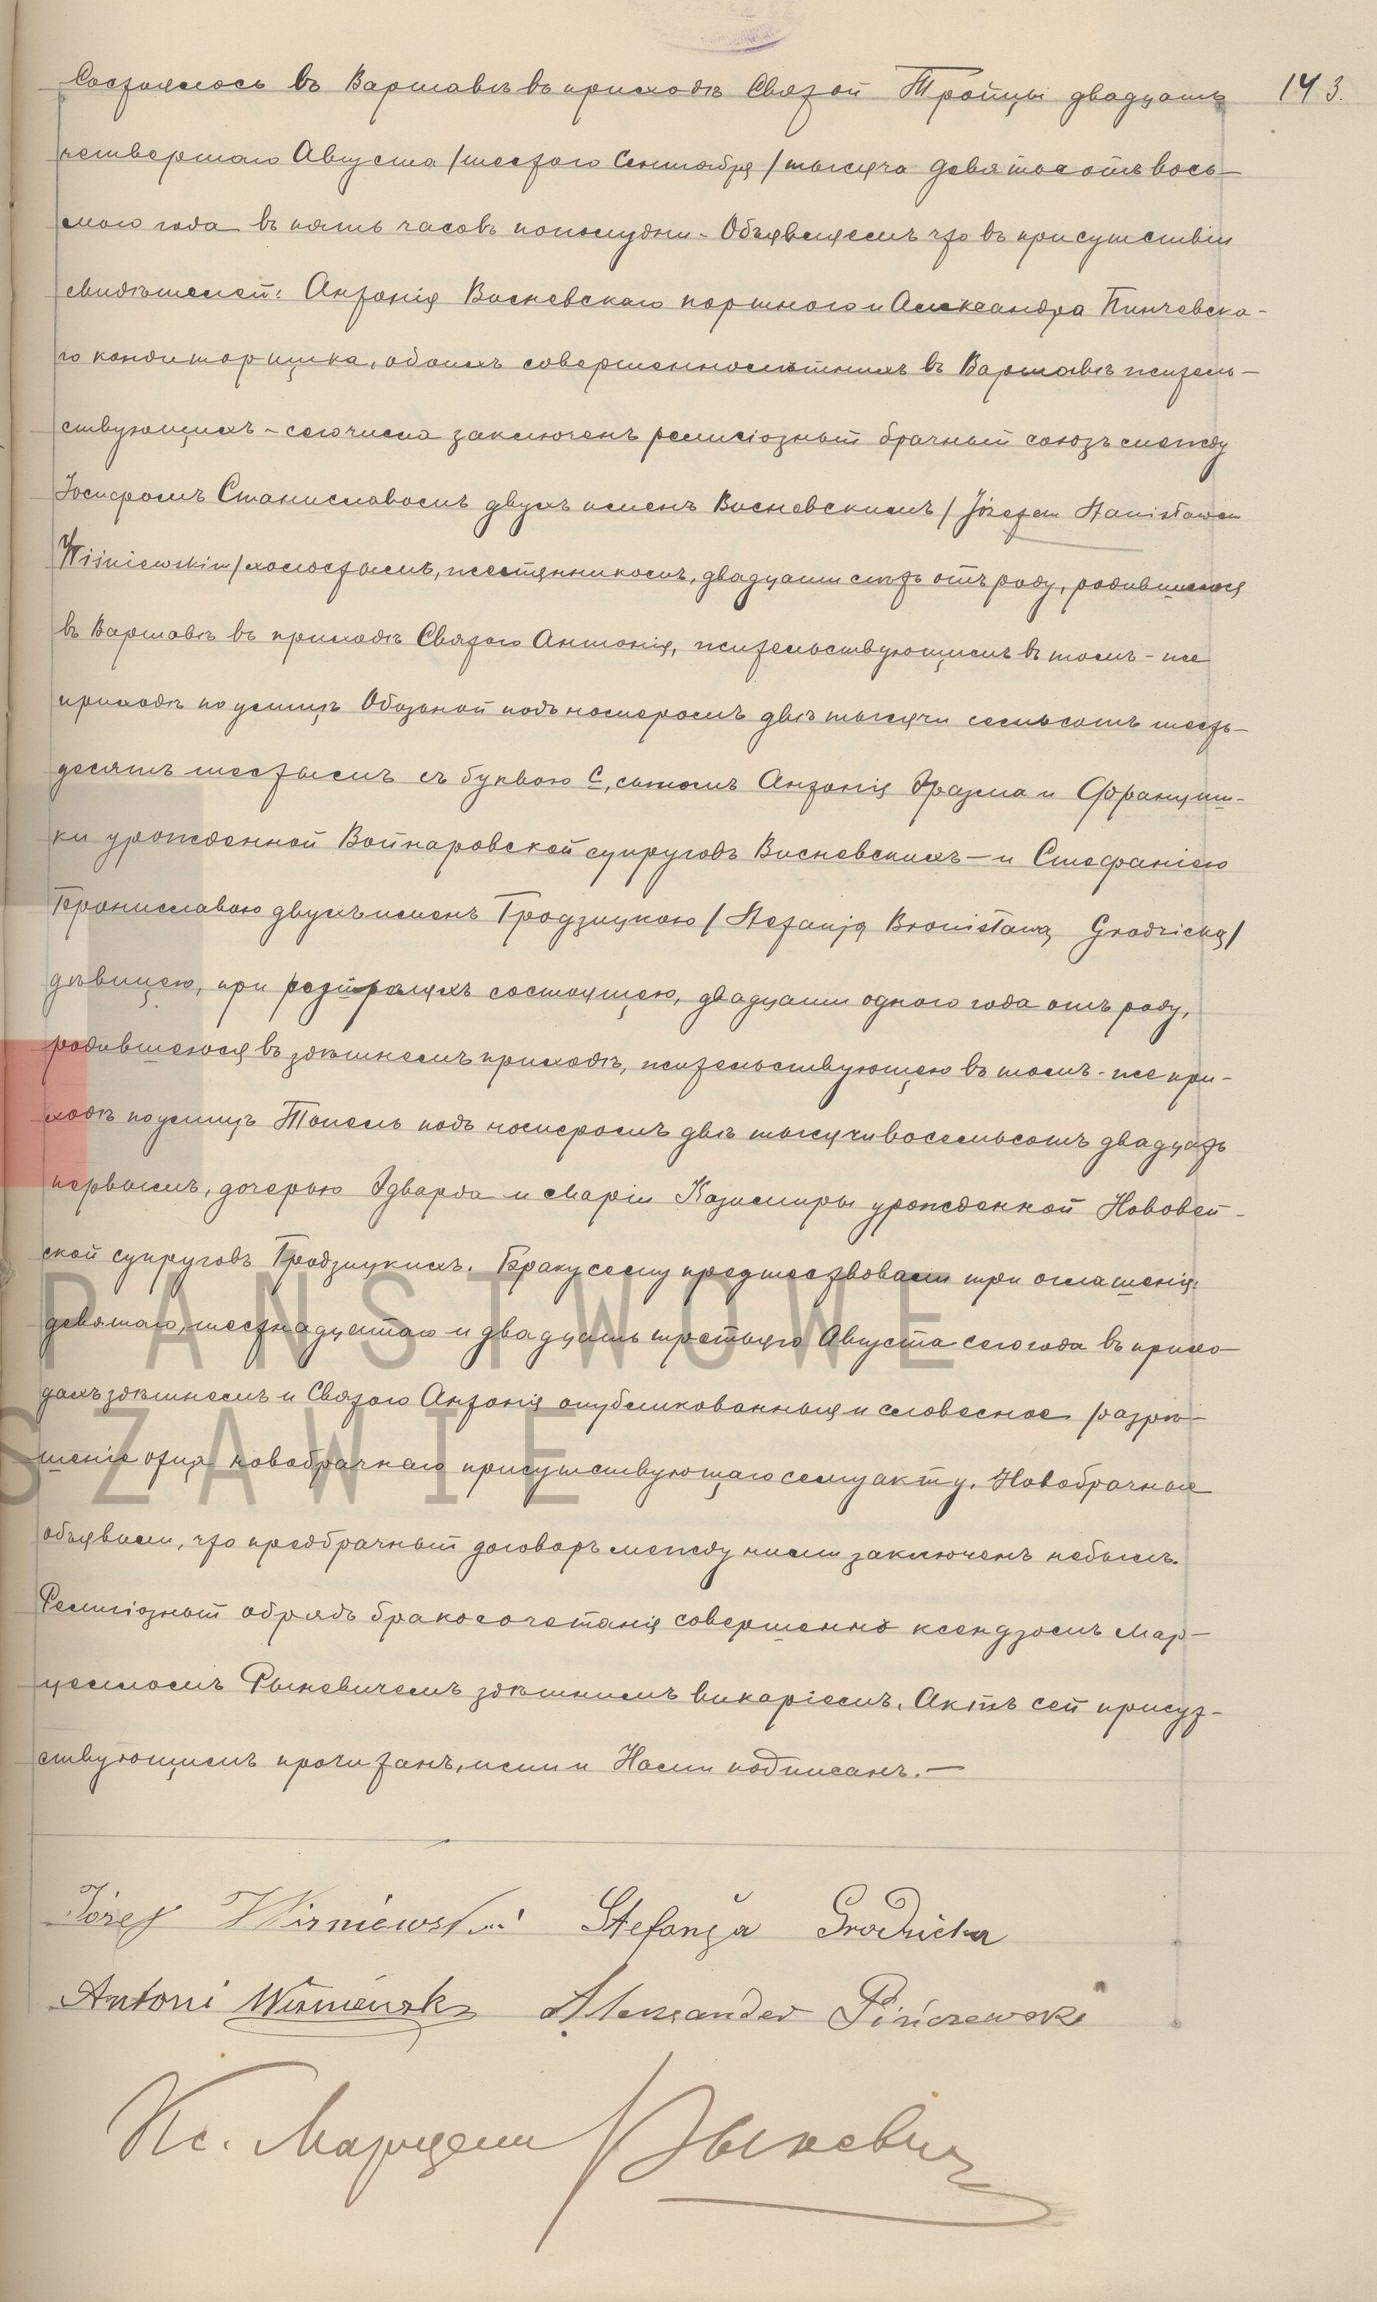 143.
Состоялось въ Варшавѣ въ приходѣ Святой Тройцы двадцать
четвертаго Августа /шестаго Сентября/ тысяча девятьсотъ вось-
мого года въ пять часовъ пополудни. Объявляемъ что въ присутствіи
свидѣтелей: Антонія Висневскаго портного и Александра Пинчевска-
го кондиторщика, обоихъ совершеннолѣтнихъ въ Варшавѣ житель-
ствующихъ - сего числа заключенъ религіозный брачный союзъ между
Іосифомъ Станиславомъ двухъ именъ Висневскимъ /Józefem Stanisławem
Wiśniewskim/ холостымъ, жестянникомъ, двадцати лѣтъ отъ роду, родившимся
въ Варшавѣ въ приходѣ Святого Антонія, жительствующимъ въ томъ-же
приходѣ по улицѣ Обозной подъ номеромъ двѣ тысячи семьсотъ шесть-
десятъ шестымъ съ буквою С, сыномъ Антонія Эразма и Францишъ-
ки урожденной Войнаровской супруговъ Висневскихъ — и Стефаніею
Брониславою двухъ именъ Гродзицкою /Stefanją Bronisławą Grodzicką/
дѣвицею, при родителяхъ состоящею, двадцати одного года отъ роду,
родившеюся въ здѣшнемъ приходѣ, жительствующею въ томъ-же при-
ходѣ по улицѣ Тополь подъ номеромъ двѣ тысячи восемьсотъ двадцать
первымъ, дочерью Эдварда и Маріи Казимиры урожденной Нововей-
ской супруговъ Гродзицкихъ. Браку сему предшествовали три оглашенія:
девятаго, шестнадцатаго и двадцать третьяго Августа сего года въ прихо-
дахъ здѣшнемъ и Святого Антонія опубликованныя и словесное разрѣ-
шеніе отца новобрачнаго присутствующаго сему акту. Новобрачные
объявили, что предбрачный договоръ между ними заключенъ небылъ.
Религіозный обрядъ бракосочетанія совершенъ ксендзомъ Мар-
целіомъ Рыкевичемъ здѣшнимъ викаріемъ. Актъ сей присут-
ствующимъ прочитанъ, ими и Нами подписанъ. —
Józef Wiśniewski Stefanja Grodzicka
Antoni Wiśniewski Aleksander Pińczewski
Кс. Марцели Рыкевич
PAŃSTWOWE
SZAWIE